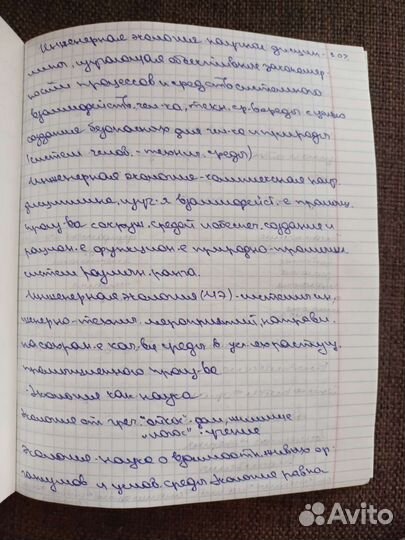 Инженерная экология научная дисцип-
лина, изучающая объективные закономер-
ности процессов и средств системного
взаимодейств. чел-ка, техн. ср-в среды с целью
создание безопасных для чел-ка и природы
(систем челов. - технич. среды)
Инженерная экология - комплексная науч.
дисциплина, изуч-я взаимодейст-е промыш.
произ-ва с окруж. средой и обеспеч. создание и
рацион-е функцион-е природно - промышл.
систем различн. ранга.
Инженерная экология (ИЭ) - система ин-
женерно - технич. мероприятий, направл.
на сохран-е кач-ва среды в усл-ях растущ.
промышленного произ-ва
Экология как наука
Экология от греч. "ойкос" - дом, жилище
"логос" - учение
Экология - наука о взаимоот. живых ор-
ганизмов и услов. среды. Экология равна
Avito